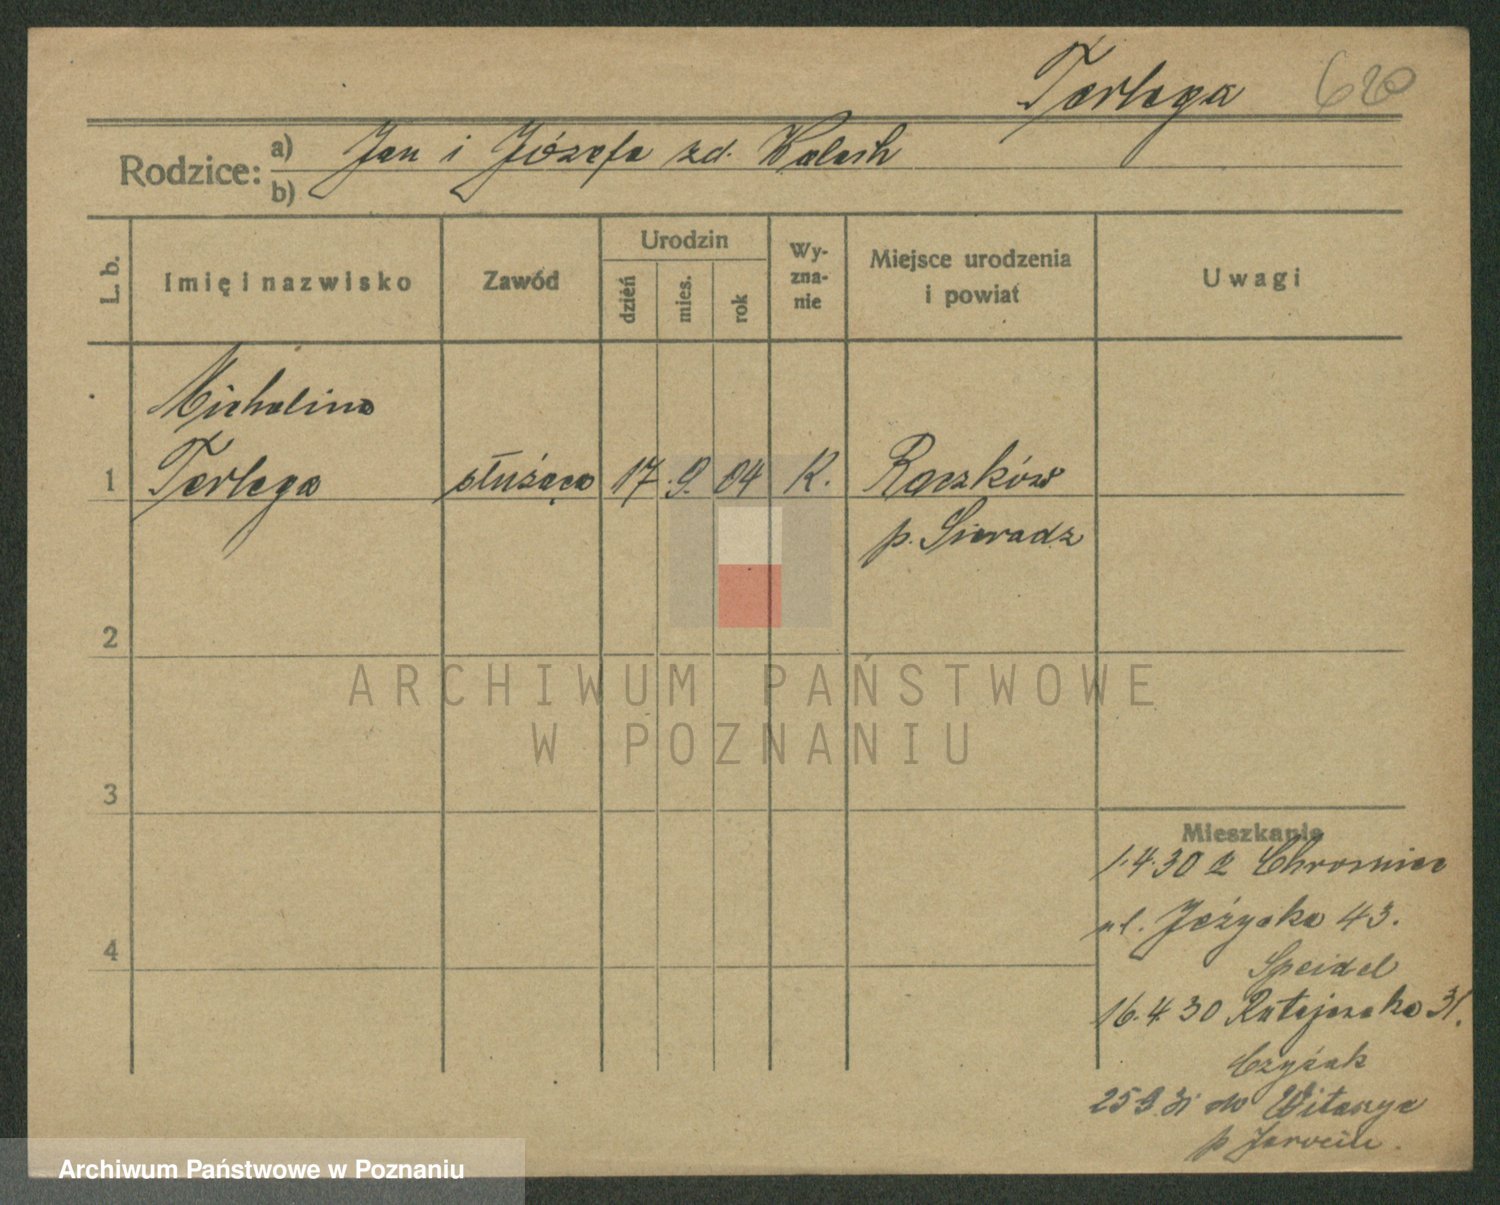 Terlega 620
Rodzice: a) Jan i Józefa zd. Walach
b)
L. b. Imię i nazwisko Zawód Urodzin dzień mies. rok Wyzna-nie Miejsce urodzenia i powiat Uwagi
Michalina
1 Terlega służąca 17 .9. 04 K. Raczków
p. Sieradz
2
3
Mieszkanie
1.4.30 z
ul. Jeżycka 43.
4
Speidel
16.4.30 Ratajczaka 31.
Czyżak
25.3.31 do Witaszyc
p. Jarocin.
ARCHIWUM PAŃSTWOWE
W POZNANIU
Archiwum Państwowe w Poznaniu